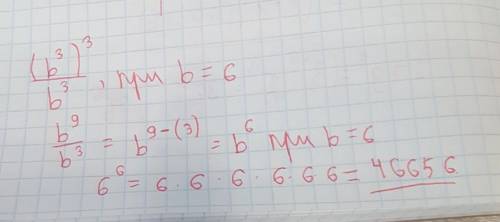 (b³)³/b³, при b = 6
b⁹/b³ = b⁹⁻⁽³⁾ = b⁶ при b = 6
6⁶ = 6 · 6 · 6 · 6 · 6 6 = 46656